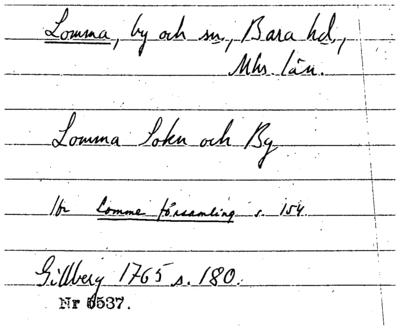 Lomma, by och sn., Bara hd.,
Mhs län.
Lomma Sokn och By
Lomme församling s. 154
Gillberg 1765 s. 180.
Nr 5537.